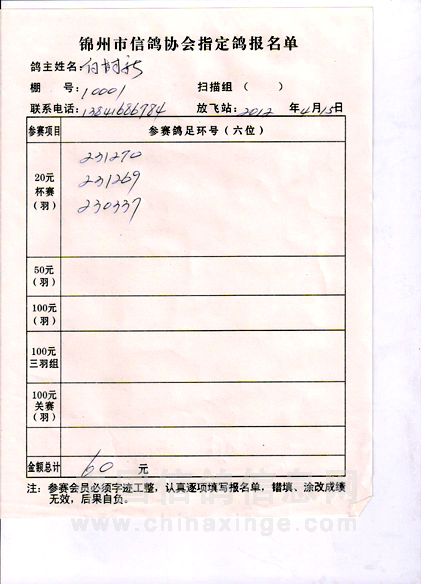 锦州市信鸽协会指定鸽报名单
鸽主姓名:付树新
棚 号:10001 扫描组 ( )
联系电话:13841686784 放飞站:2012 年4月15日
参赛项目 参赛鸽足环号(六位)
20元
杯赛
(羽)
231270
231269
230337
50元
(羽)
100元
(羽)
100元
三羽组
100元
关赛
(羽)
金额总计 60 元
注:参赛会员必须字迹工整,认真逐项填写报名单,错填、涂改成绩
无效,后果自负。
www.chinaxinge.com